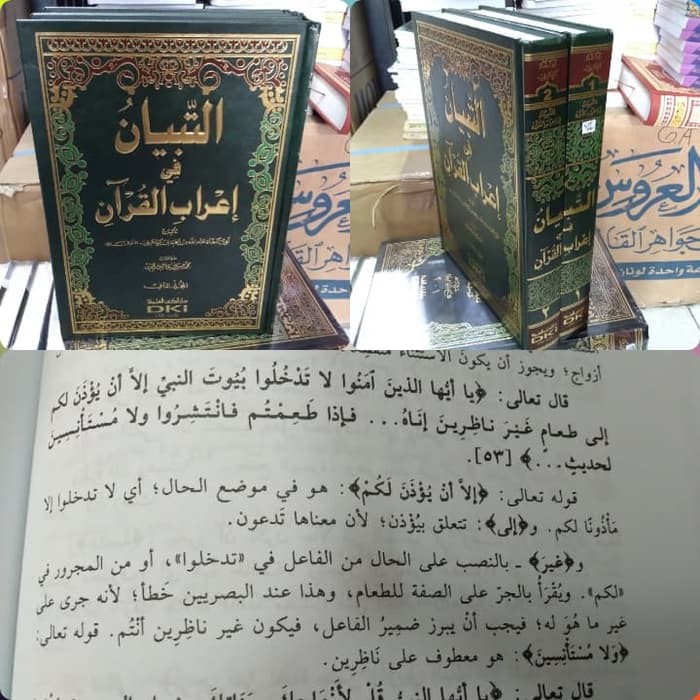 التبيان
في
إعراب القرآن
تأليف
المجلد الثاني
دار الكتب العلمية
DKi
التبيان
في
إعراب القرآن
التبيان
في
إعراب القرآن
٢
DKi
العروس
جواهر القا
أزواج؛ ويجوز أن يكون الاستثناء
قال تعالى: ﴿يا أيُّها الذينَ آمَنُوا لا تَدْخُلُوا بُيُوتَ النبيّ إلاَّ أَنْ يُؤْذَنَ لكم
إلى طعامٍ غَيْرَ ناظِرِينَ إنَاهُ... فإذا طَعِمْتُم فانْتَشِرُوا ولا مُسْتَأْنِسِينَ
لحديثٍ...﴾ [٥٣].
قوله تعالى: ﴿إلاَّ أنْ يُؤْذَنَ لَكُمْ﴾: هو في موضع الحال؛ أي لا تدخلوا إلا
مَأْذُونًا لكم. و﴿إلى﴾: تتعلق بيُؤْذن؛ لأن معناها تَدعون.
و﴿غيرَ﴾ ـ بالنصب على الحال من الفاعل في «تدخلوا»، أو من المجرور في
«لكم». ويُقْرَأُ بالجرّ على الصفة للطعام، وهذا عند البصريين خَطأ؛ لأنه جرى على
غير ما هُوَ له؛ فيجب أنْ يبرز ضمِيرُ الفاعل، فيكون غير ناظِرِين أنْتُم. قوله تعالى:
﴿وَلا مُسْتَأْنِسِينَ﴾: هو معطوف على نَاظِرِين.
قال تعالى: